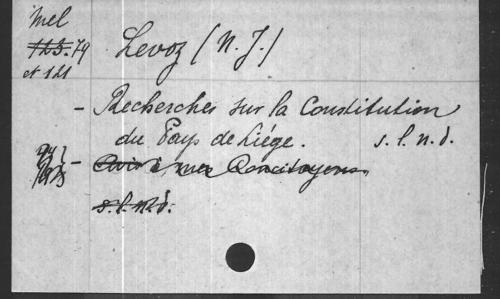 Mel
123.79
et 121
Levoz (N. J.)
- Recherches sur la Constitution
du Pays de Liége. s. l. n. d.
- Avis à mes Concitoyens
s. l. n. d.